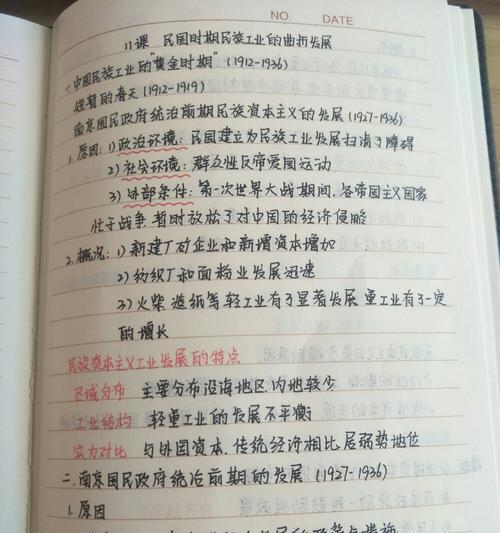 NO. DATE
11课 "民国时期民族工业的曲折发展
一.中国民族工业的"黄金时期"(1912-1936)
短暂的春天(1912-1919)
南京国民政府统治前期民族资本主义的发展(1927-1936)
1.原因:1)政治环境:民国建立为民族工业发展扫清了障碍
2)社会环境:群众性反帝爱国运动
3)外部条件:第一次世界大战期间,各帝国主义国家
忙于战争,暂时放松了对中国的经济侵略
2.概况:1)新建厂矿企业和新增资本增加
2)纺织厂和面粉业发展迅速
3)火柴 造纸等轻工业有了显著发展 重工业有了一定
的增长
民族资本主义工业发展的特点
区域分布 主要分布沿海地区内地较少
工业结构 轻重工业的发展不平衡
实力对比 与外国资本.传统经济相比 居弱势地位
二.南京国民政府统治前期的发展(1927-1936)
1.原因